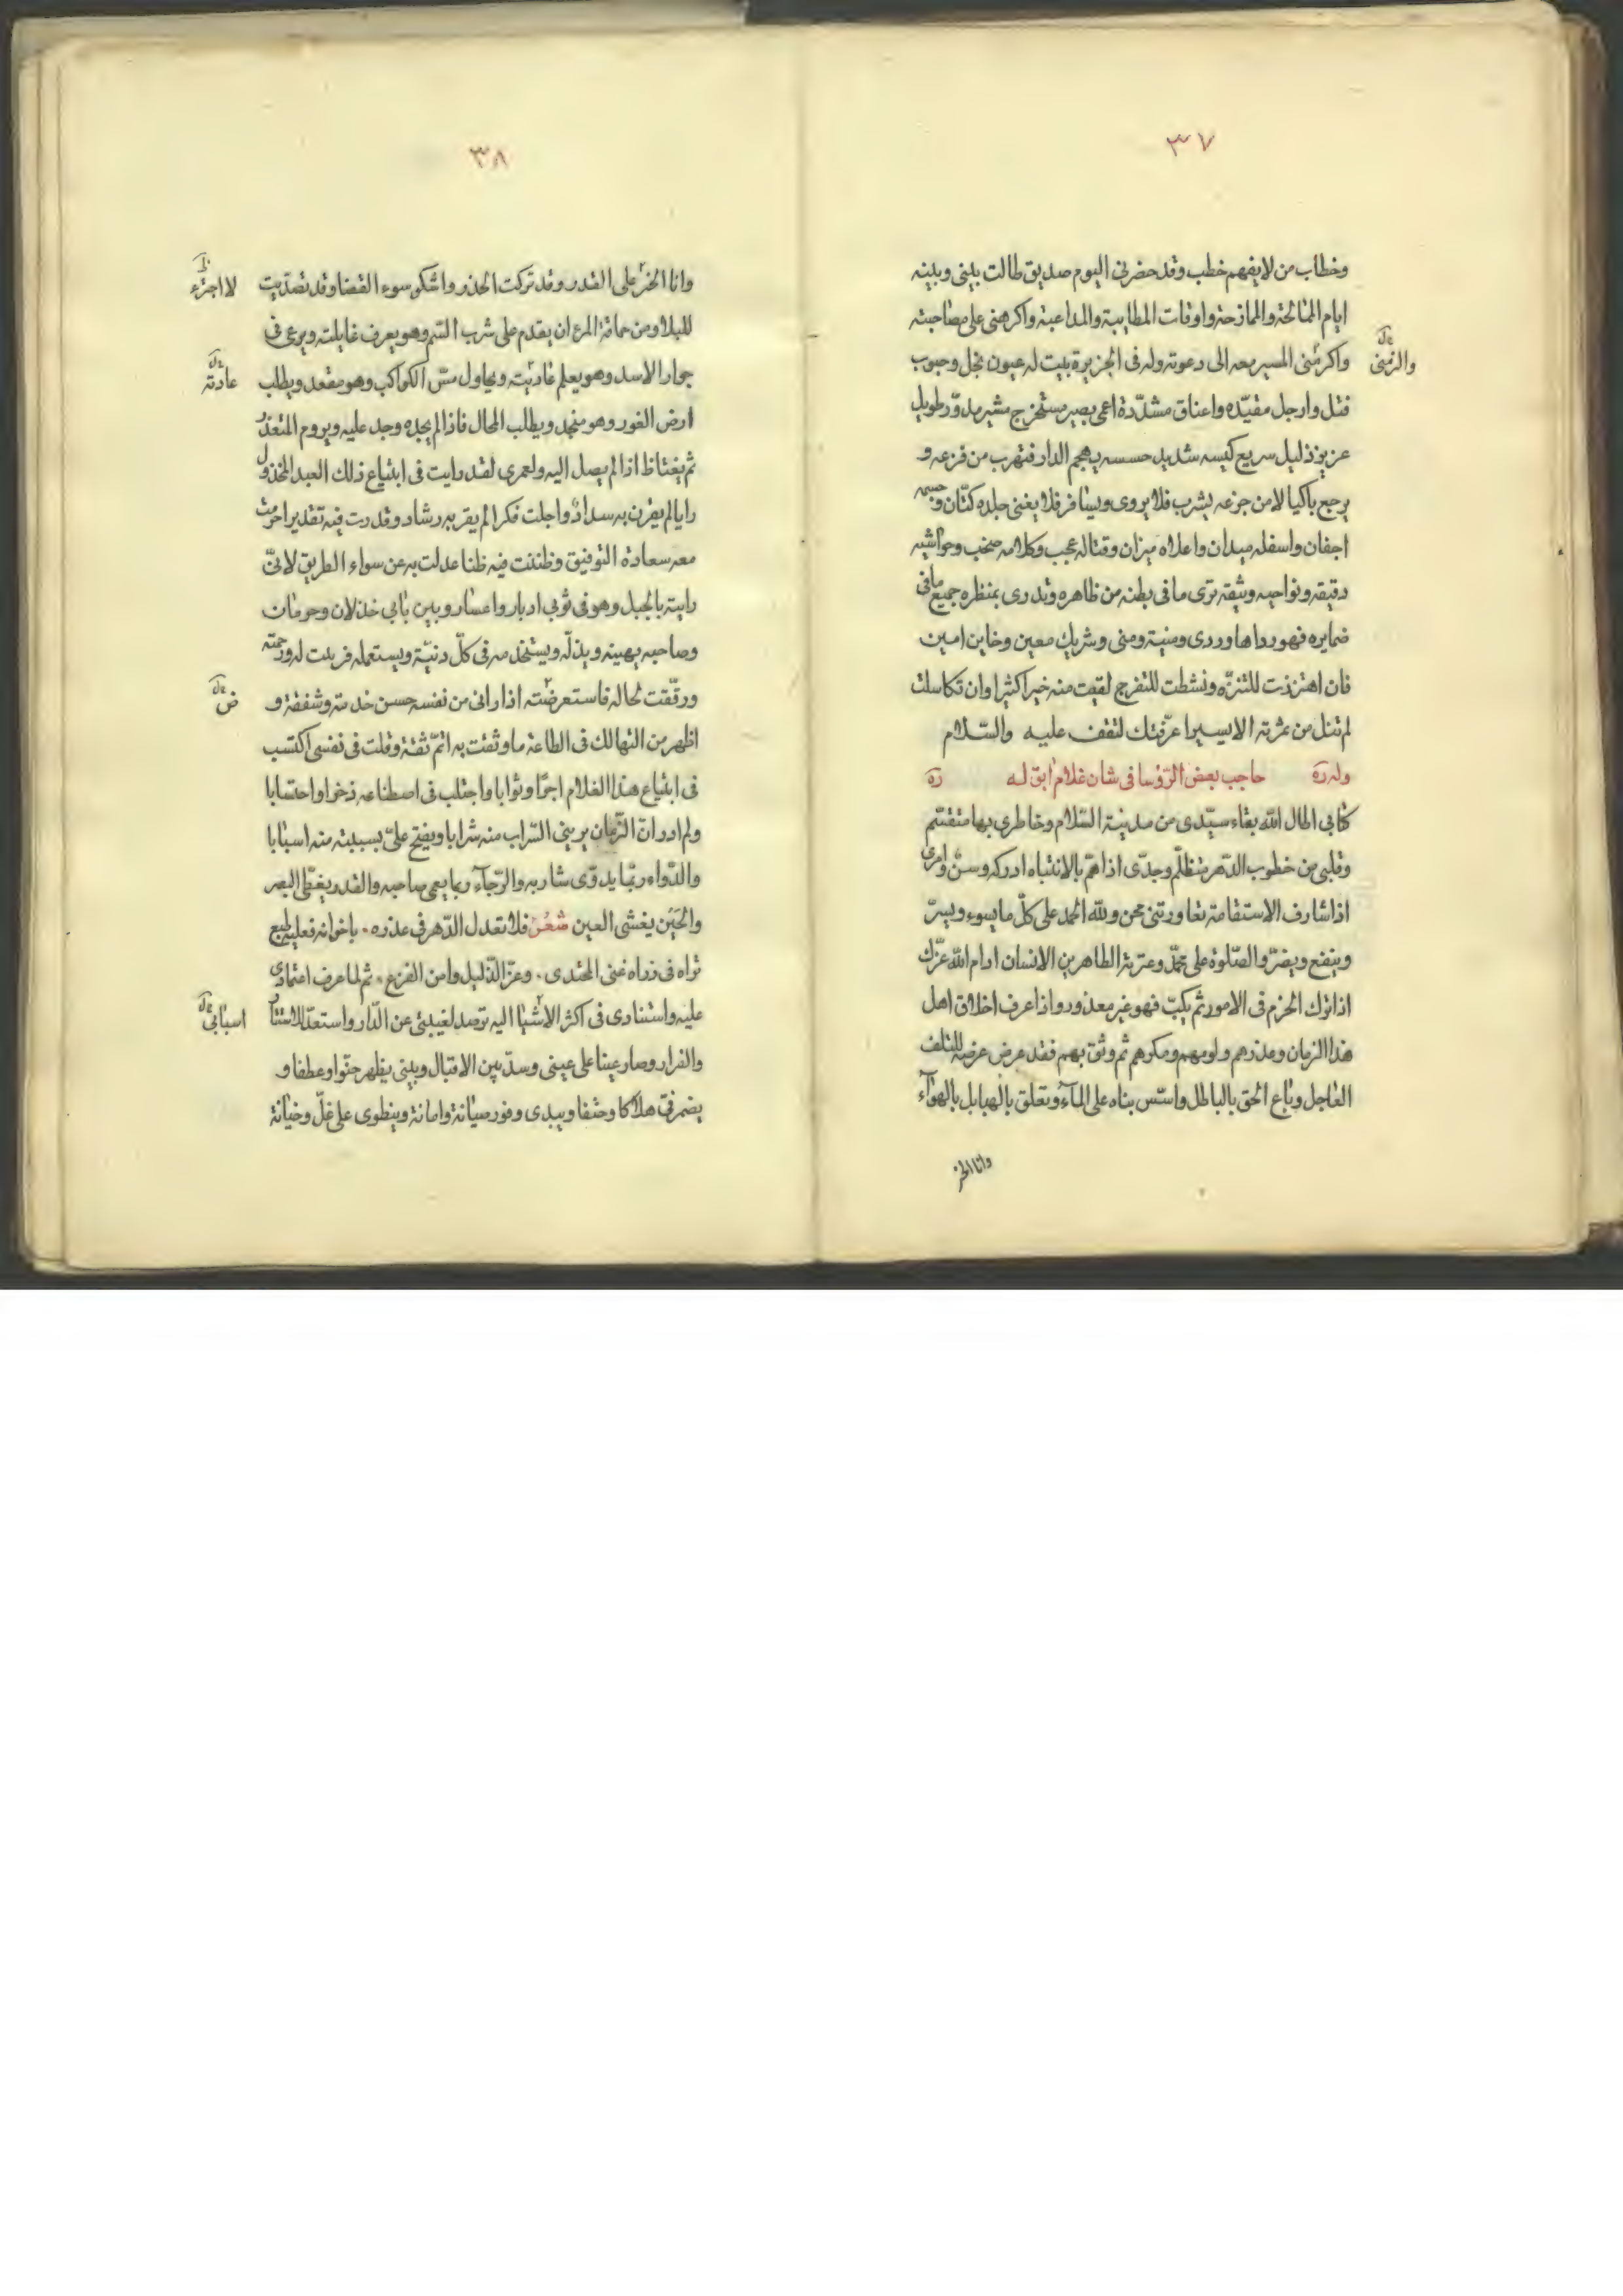 ٣٧
وخطاب من لا يفهم خطب وقد حضرنى اليوم صديق طالت بينى وبينه
ايام الممالحة والممازحة واوقات المطايبة والمداعبة واكرهنى على مصاحبته
واكرمنى المسير معه الى دعوته وله فى الجزيرة بيت له عيون نجل وحبوب
والزمنى
فتل وارجل مقيّده واعناق مشدّدة اعمى بصير مستخرج مشير مدوّر طويل
عزيز ذليل سريع كيسه شديد حسسه يهجم الدار فتهرب من فزعه و
يرجع باكيا لا من جزعه يشرب فلا يروى ويسافر فلا يغنى جلده كتّان وجسمه
اجفان واسفله ميدان واعلاه ميزان وقتاله عجب وكلامه صخب وحواشيه
دقيقه ونواحيه وثيقه ترى ما فى بطنه من ظاهره وتدرى بمنظره جميع ما فى
ضمايره فهو رداها وردى ومنية ومنى وشريك معين وخاين امين
فان اهتززت للتنزّه ونشطت للتفرج لقيت منه خيرا كثيرا وان تكاسلت
لم تنل من ثمرته الا يسيرا عرّفتك لتقف عليه والسّلام
وله ره حاجب بعض الرّؤسا فى شان غلام ابق له ره
كتابى اطال الله بقاء سيّدى من مدينة السّلام وخاطرى بها متقسّم
وقلبى من خطوب الدّهر متظلّم وجدّى اذا همّ بالانتباه ادركه وسن وامرى
اذا شارف الاستقامة تعاورتنى محن ولله الحمد على كلّ ما يسوء ويسرّ
وينفع ويضرّ والصّلوة على محمّد وعترته الطاهرين الانسان ادام الله عزّك
اذا ترك الحزم فى الامور ثم نكب فهو غير معذور واذا عرف اخلاق اهل
هذا الزمان وعذرهم ولومهم ومكرهم ثم وثق بهم فقد عرض عرضه للتلف
العاجل وباع الحق بالباطل واسّس بناه على المآء وتعلق بالهبابل بالهوآء
وانا الخر
٣٨
وانا الخر على القدر وقد تركت الحذر واشكو سوء القضا وقد تصدّيت
لا اجترء
للبلا ومن حماقة المرء ان يقدم على شرب السّم وهو يعرف غايلته ويرعى فى
جوار الاسد وهو يعلم غاديته ويحاول مسّ الكواكب وهو مقعد ويطلب
عادته
ارض الغور وهو منجد ويطلب المحال فاذا لم يجده وجد عليه ويروم المتعذر
ثم يغتاظ اذا لم يصل اليه ولعمرى لقد رايت فى ابتياع ذلك العبد المخذول
رايا لم يقرن به سداد واجلت فكرا لم يقربه رشاد وقدرت فيه تقديرا حرمت
معه سعادة التوفيق وظننت فيه ظنا عدلت به عن سواء الطريق لانّى
رايته بالجبل وهو فى ثوبى ادبار واعسار وبين بابى خذلان وحرمان
وصاحبه يهينه ويذلّه ويستخدمه فى كلّ دنيّة ويستعمله فرثيت له ورحمته
ورقّقت لحاله فاستعرضته اذ ارانى من نفسه حسن خدمة وشفقة و
ض
اظهر من التهالك فى الطاعة ما وثقت به اتمّ ثقة وقلت فى نفسى اكتسب
فى ابتياع هذا الغلام اجرًا وثوابا واجتلب فى اصطناعه ذخرا واحتسابا
ولم ادر انّ الزّمان يرينى السّراب منه شرابا ويفتح علىّ بسببيته منه اسبابا
والدّواء ربّما يدوّى شاربه والرّجآء ربما يعمى صاحبه والقدر يغطّى البصر
والحَيَن يغشى العين شعر فلا تعدل الدّهر فى عذره • باخوانه فعليه طبع
تراه فى ذراه غنى المجتدى • وعزّ الذّليل وامن الفزع • ثم لما عرف اعتمادى
عليه واستنادى فى اكثر الاشيا اليه ترصد لغيبتى عن الدّار واستعدّ للاستتار
اسبابى
والفرار وصار عينا على عينى وسدّ بين الاقبال وبينى يظهر حنّوا وعطفا و
يضمر فىّ هلاكا وحتفا ويبدى وفور صيانة وامانة وينطوى على غلّ وخيانة